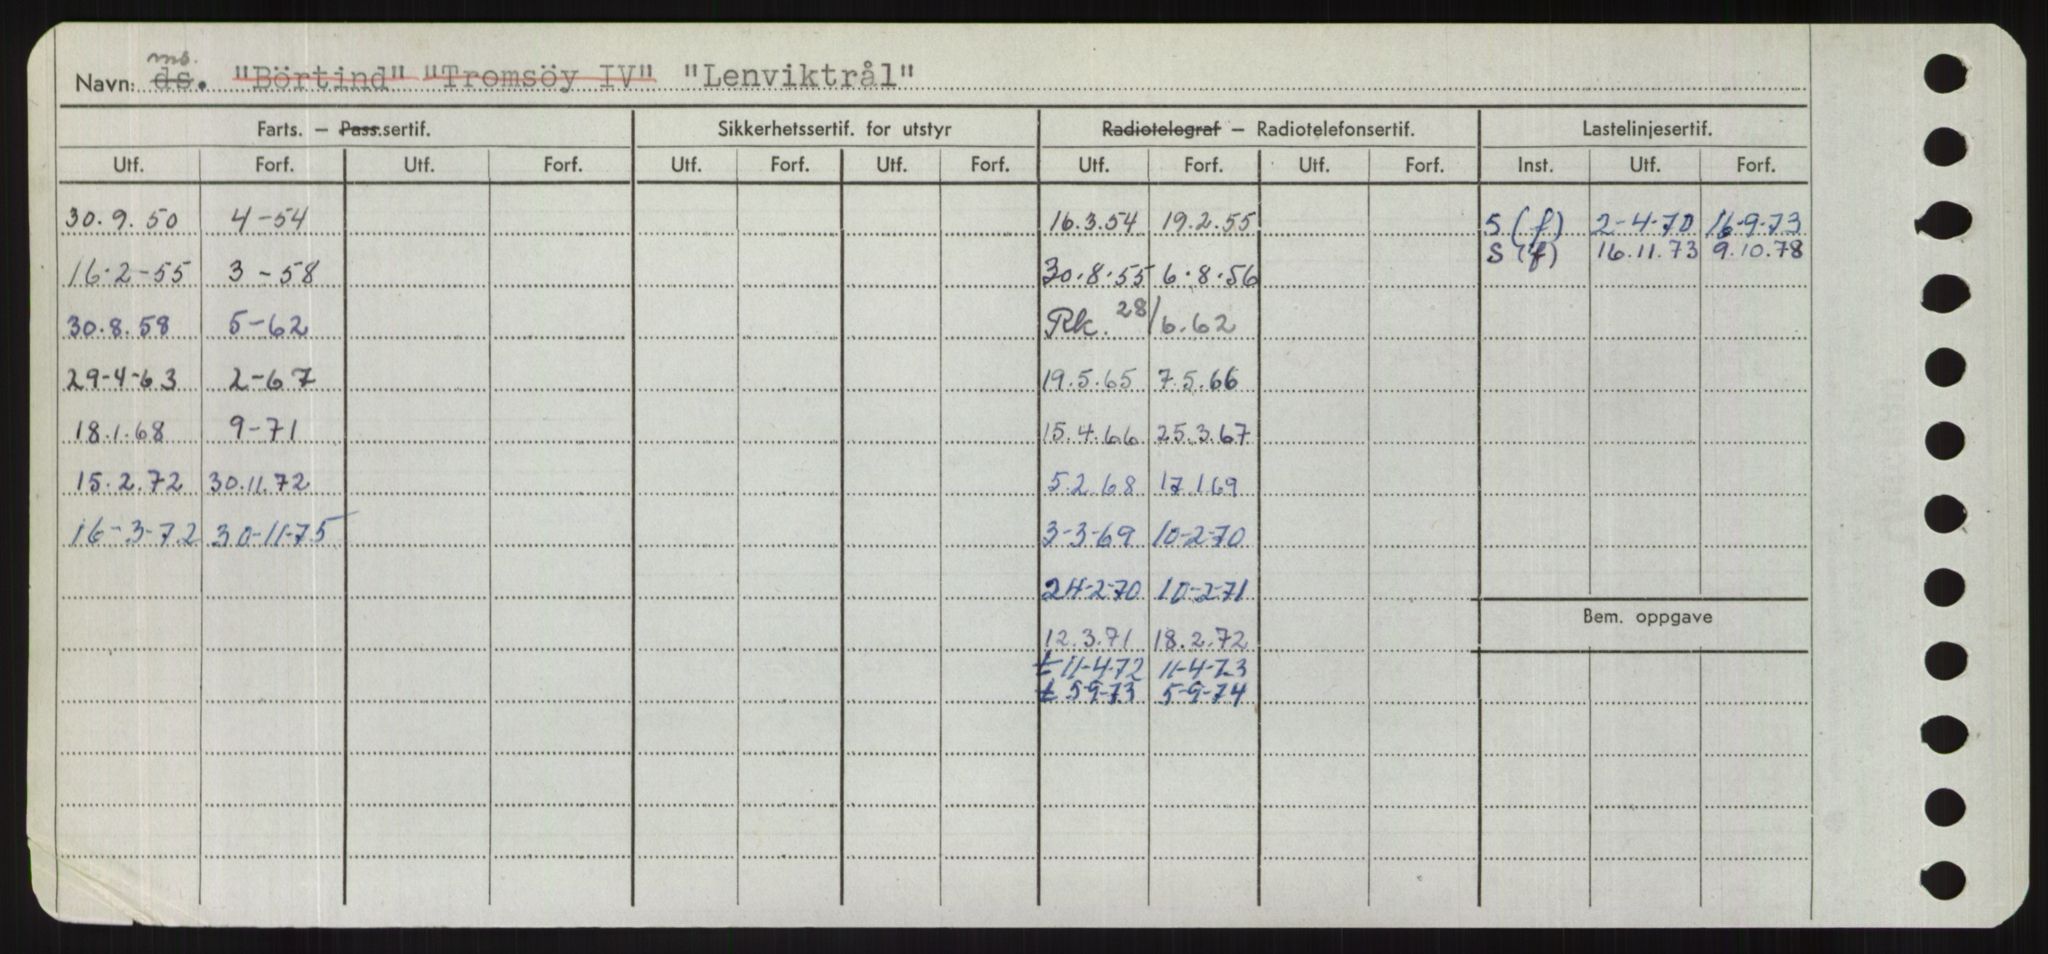 ms.
Navn: ds. "Börtind" "Tromsöy IV" "Lenviktrål"
Farts. – Pass.sertif. Sikkerhetssertif. for utstyr Radiotelegraf – Radiotelefonsertif. Lastelinjesertif.
Utf. Forf. Utf. Forf. Utf. Forf. Utf. Forf. Utf. Forf. Utf. Forf. Inst. Utf. Forf.
30.9.50 4-54 16.3.54 19.2.55 S (f) 2-4-70 16-9-73
S (f) 16.11.73 9.10.78
16-2-55 3-58 30.8.55 6.8.56
30.8.58 5-62 Rk. 28/6.62
29-4-63 2-67 19.5.65 7.5.66
18.1.68 9-71 15.4.66 25.3.67
15.2.72 30.11.72 5.2.68 17.1.69
16-3-72 30-11-75 3-3-69 10-2-70
24-2-70 10-2-71
Bem. oppgave
12.3.71 18.2.72
t 11-4-72 11-4-73
t 5-9-73 5-9-74